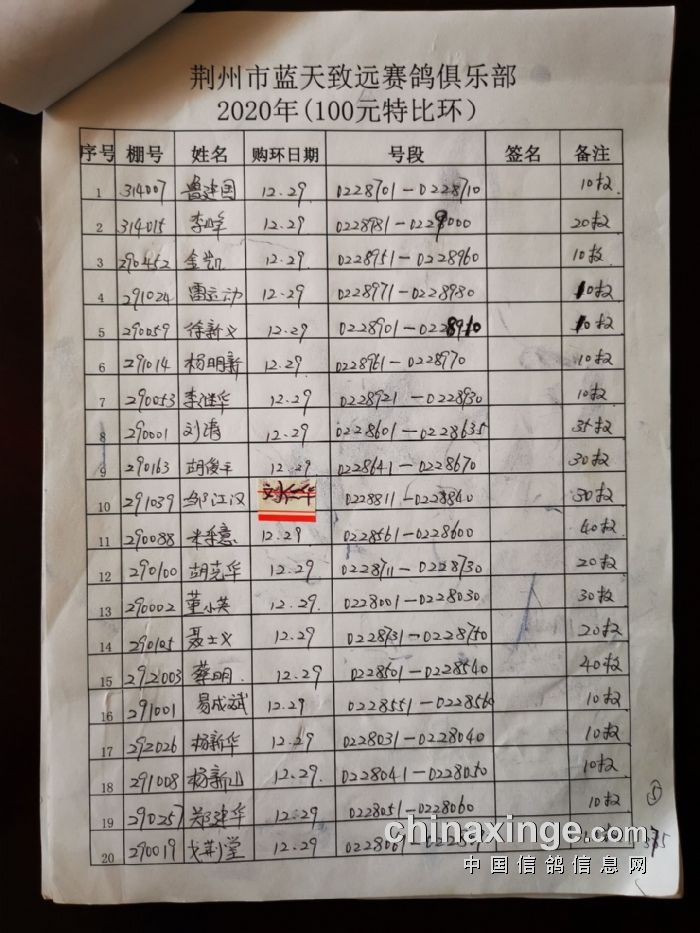 荆州市蓝天致远赛鸽俱乐部
2020年(100元特比环)
序号 棚号 姓名 购环日期 号段 签名 备注
1 314007 曹建国 12.29 0228701-0228710 10枚
2 314015 李峰 12.29 0228981-0229000 20枚
3 290452 金凯 12.29 0228951-0228960 10枚
4 291024 雷运动 12.29 0228971-0228980 10枚
5 290059 徐新义 12.29 0228901-0228910 10枚
6 291014 杨明新 12.29 0228961-0228970 10枚
7 290053 李继华 12.29 0228921-0228930 10枚
8 290001 刘涛 12.29 0228601-0228635 35枚
9 290163 胡俊平 12.29 0228641-0228670 30枚
10 291039 邹江汉 0228811-0228840 30枚
11 290088 朱季意 12.29 0228561-0228600 40枚
12 290100 胡克华 12.29 0228711-0228730 20枚
13 290002 董小英 12.29 0228001-0228030 30枚
14 290105 聂士义 12.29 0228731-0228750 20枚
15 292003 蔡明 12.29 0228501-0228540 40枚
16 291001 易成斌 12.29 0228551-0228560 10枚
17 292026 杨新华 12.29 0228031-0228040 10枚
18 291008 杨新山 12.29 0228041-0228050 10枚
19 290257 郑建华 12.29 0228051-0228060 10枚
20 290019 戈荆堂 12.29
chinaxinge.com
中国信鸽信息网